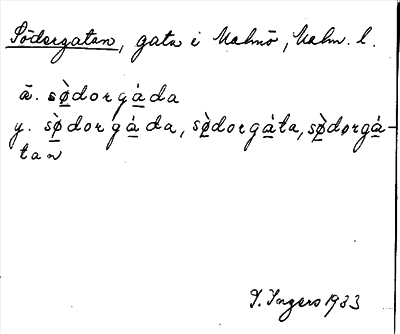 Södergatan, gata i Malmö, Malm. l.
ä. sø̱̀dorgá̱da
y. sø̱̀dorgá̱da, sø̱̀dorgá̱ta, sø̱̀dørgá̱-
tan
I. Ingers 1933